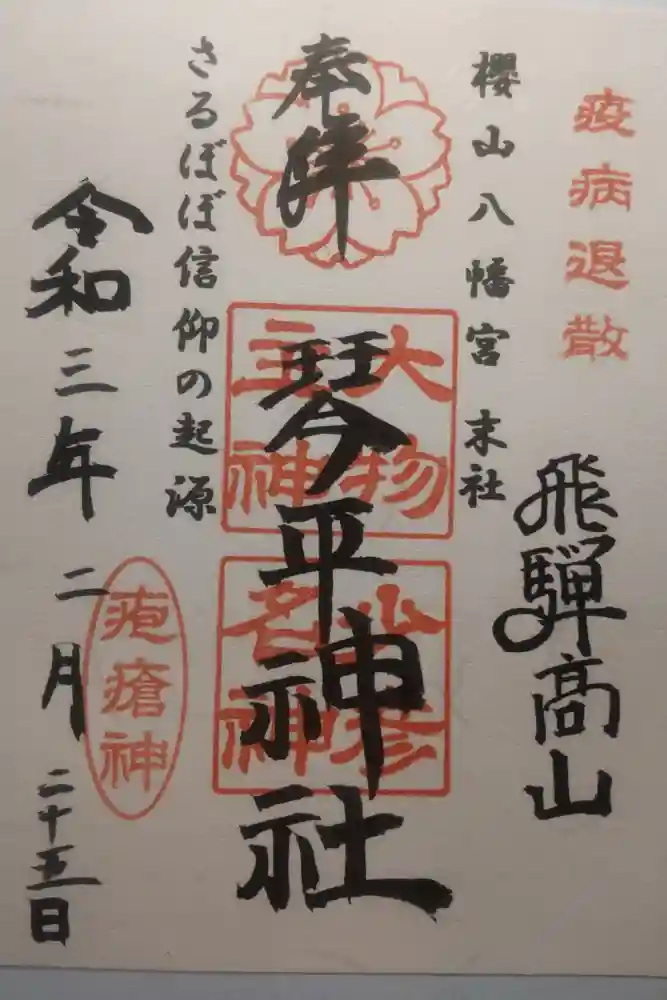 疫病退散
飛騨高山
櫻山八幡宮 末社
奉拝
琴平神社
大物
主神
少彦
名神
さるぼぼ信仰の起源
令和三年二月二十五日
疱瘡神